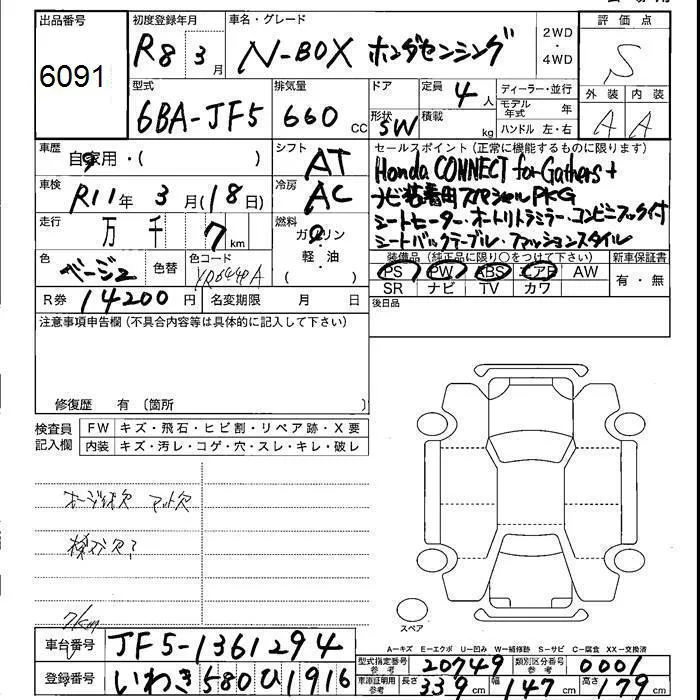 出品番号 6091
初度登録年月 R8 3月
車名・グレード N-BOX ホンダセンシング
2WD・4WD
評価点 S
外装 A 内装 A
型式 6BA-JF5
排気量 660 CC
ドア 形状 5W
定員 4人 積載 kg
ディーラー・並行
モデル年式 年
ハンドル 左・右
車歴 自家用・( )
シフト AT
セールスポイント(正常に機能するものに限ります)
Honda CONNECT for Gathers+
ナビ装着用スペシャルPKG
シートヒーター・オートリトラミラー・コンビニフック付
シートバックテーブル・ファッションスタイル
車検 R11年3月(18日)
冷房 AC
走行 万 千 7 km
燃料 ガソリン(軽・油)
色 ベージュ2 色替 色コード
装備品(純正品に限り○をつけて下さい) 新車保証書
PS PW ABS エアB AW 有・無
SR ナビ TV カワ
R券 14200円 名変期限 月 日
後日品
注意事項申告欄(不具合内容等は具体的に記入して下さい)
修復歴 有(箇所 )
検査員記入欄 FW キズ・飛石・ヒビ割・リペア跡・X要
内装 キズ・汚レ・コゲ・穴・スレ・キレ・破レ
マット欠
7km
スペア
A=キズ E=エクボ U=凹み W=補修跡 S=サビ C=腐食 XX=交換済
車台番号 JF5-1361294
型式指定番号 参考 20749 類別区分番号 参考 0001
登録番号 いわき 580 ひ 1916
車庫証明用 参考 長さ 339 cm 幅 147 cm 高さ 179 cm